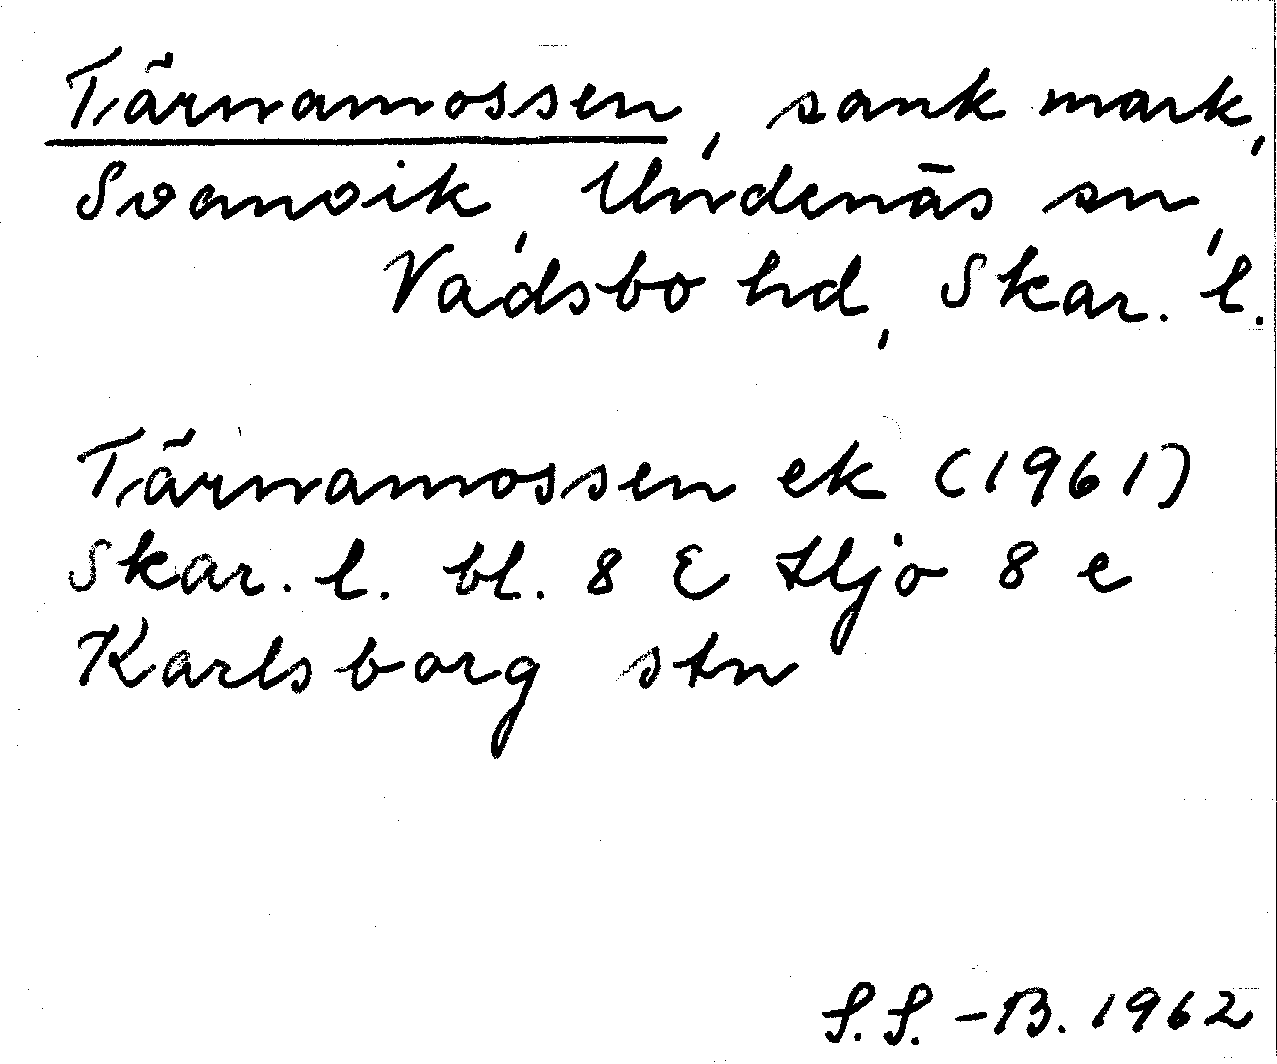 Tärnamossen, sank mark,
Svanvik, Undenäs sn,
Vadsbo hd, Skar. l.
Tärnamossen ek (1961)
Skar. l. bl. 8 E Hjo 8 e
Karlsborg stn
S.S.-B. 1962